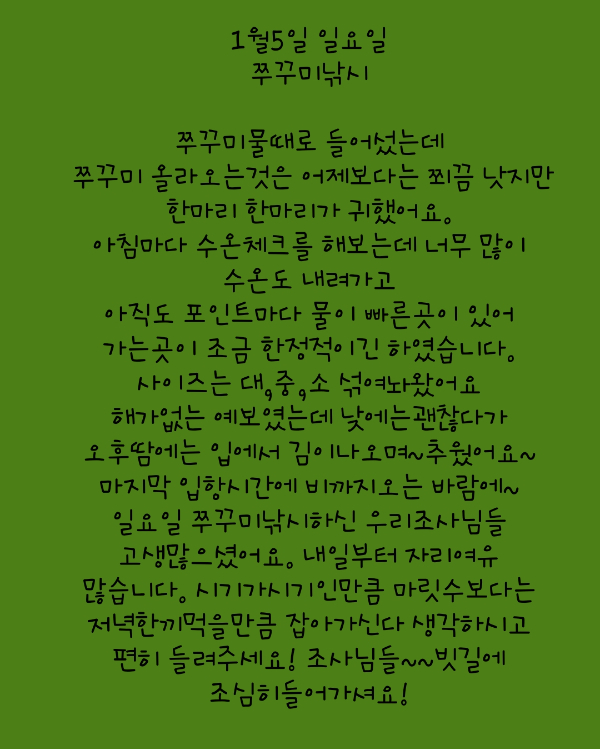 1월5일 일요일
쭈꾸미낚시
쭈꾸미물때로 들어섰는데
쭈꾸미 올라오는것은 어제보다는 쬐끔 낫지만
한마리 한마리가 귀했어요.
아침마다 수온체크를 해보는데 너무 많이
수온도 내려가고
아직도 포인트마다 물이 빠른곳이 있어
가는곳이 조금 한정적이긴 하였습니다.
사이즈는 대,중,소 섞여놔왔어요
해가없는 예보였는데 낮에는괜찮다가
오후땀에는 입에서 김이나오며~추웠어요~
마지막 입항시간에 비까지오는 바람에~
일요일 쭈꾸미낚시하신 우리조사님들
고생많으셨어요. 내일부터 자리여유
많습니다. 시기가시기인만큼 마릿수보다는
저녁한끼먹을만큼 잡아가신다 생각하시고
편히 들려주세요! 조사님들~~빗길에
조심히들어가셔요!